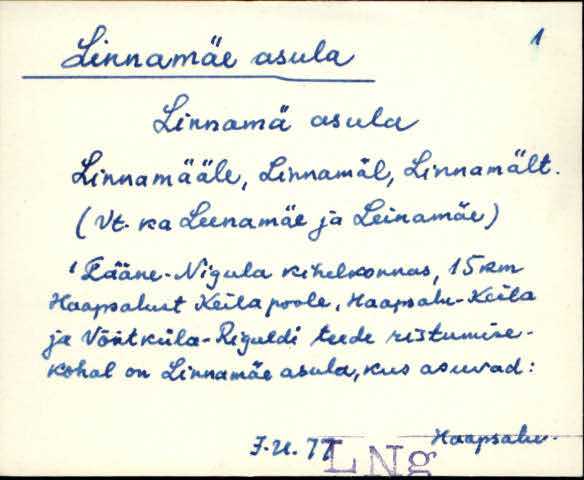 Linnamäe asula
1
Linnamä asula
Linnamääle, Linnamäl, Linnamält.
(Vt. ka Leenamäe ja Leinamäe)
'Lääne-Nigula kihelkonnas, 15 km
Haapsalust Keila poole, Haapsalu-Keila
ja Võntküla-Riguldi teede ristumise-
kohal on Linnamäe asula, kus asuvad:
J.U. 77
Haapsalu
LNg